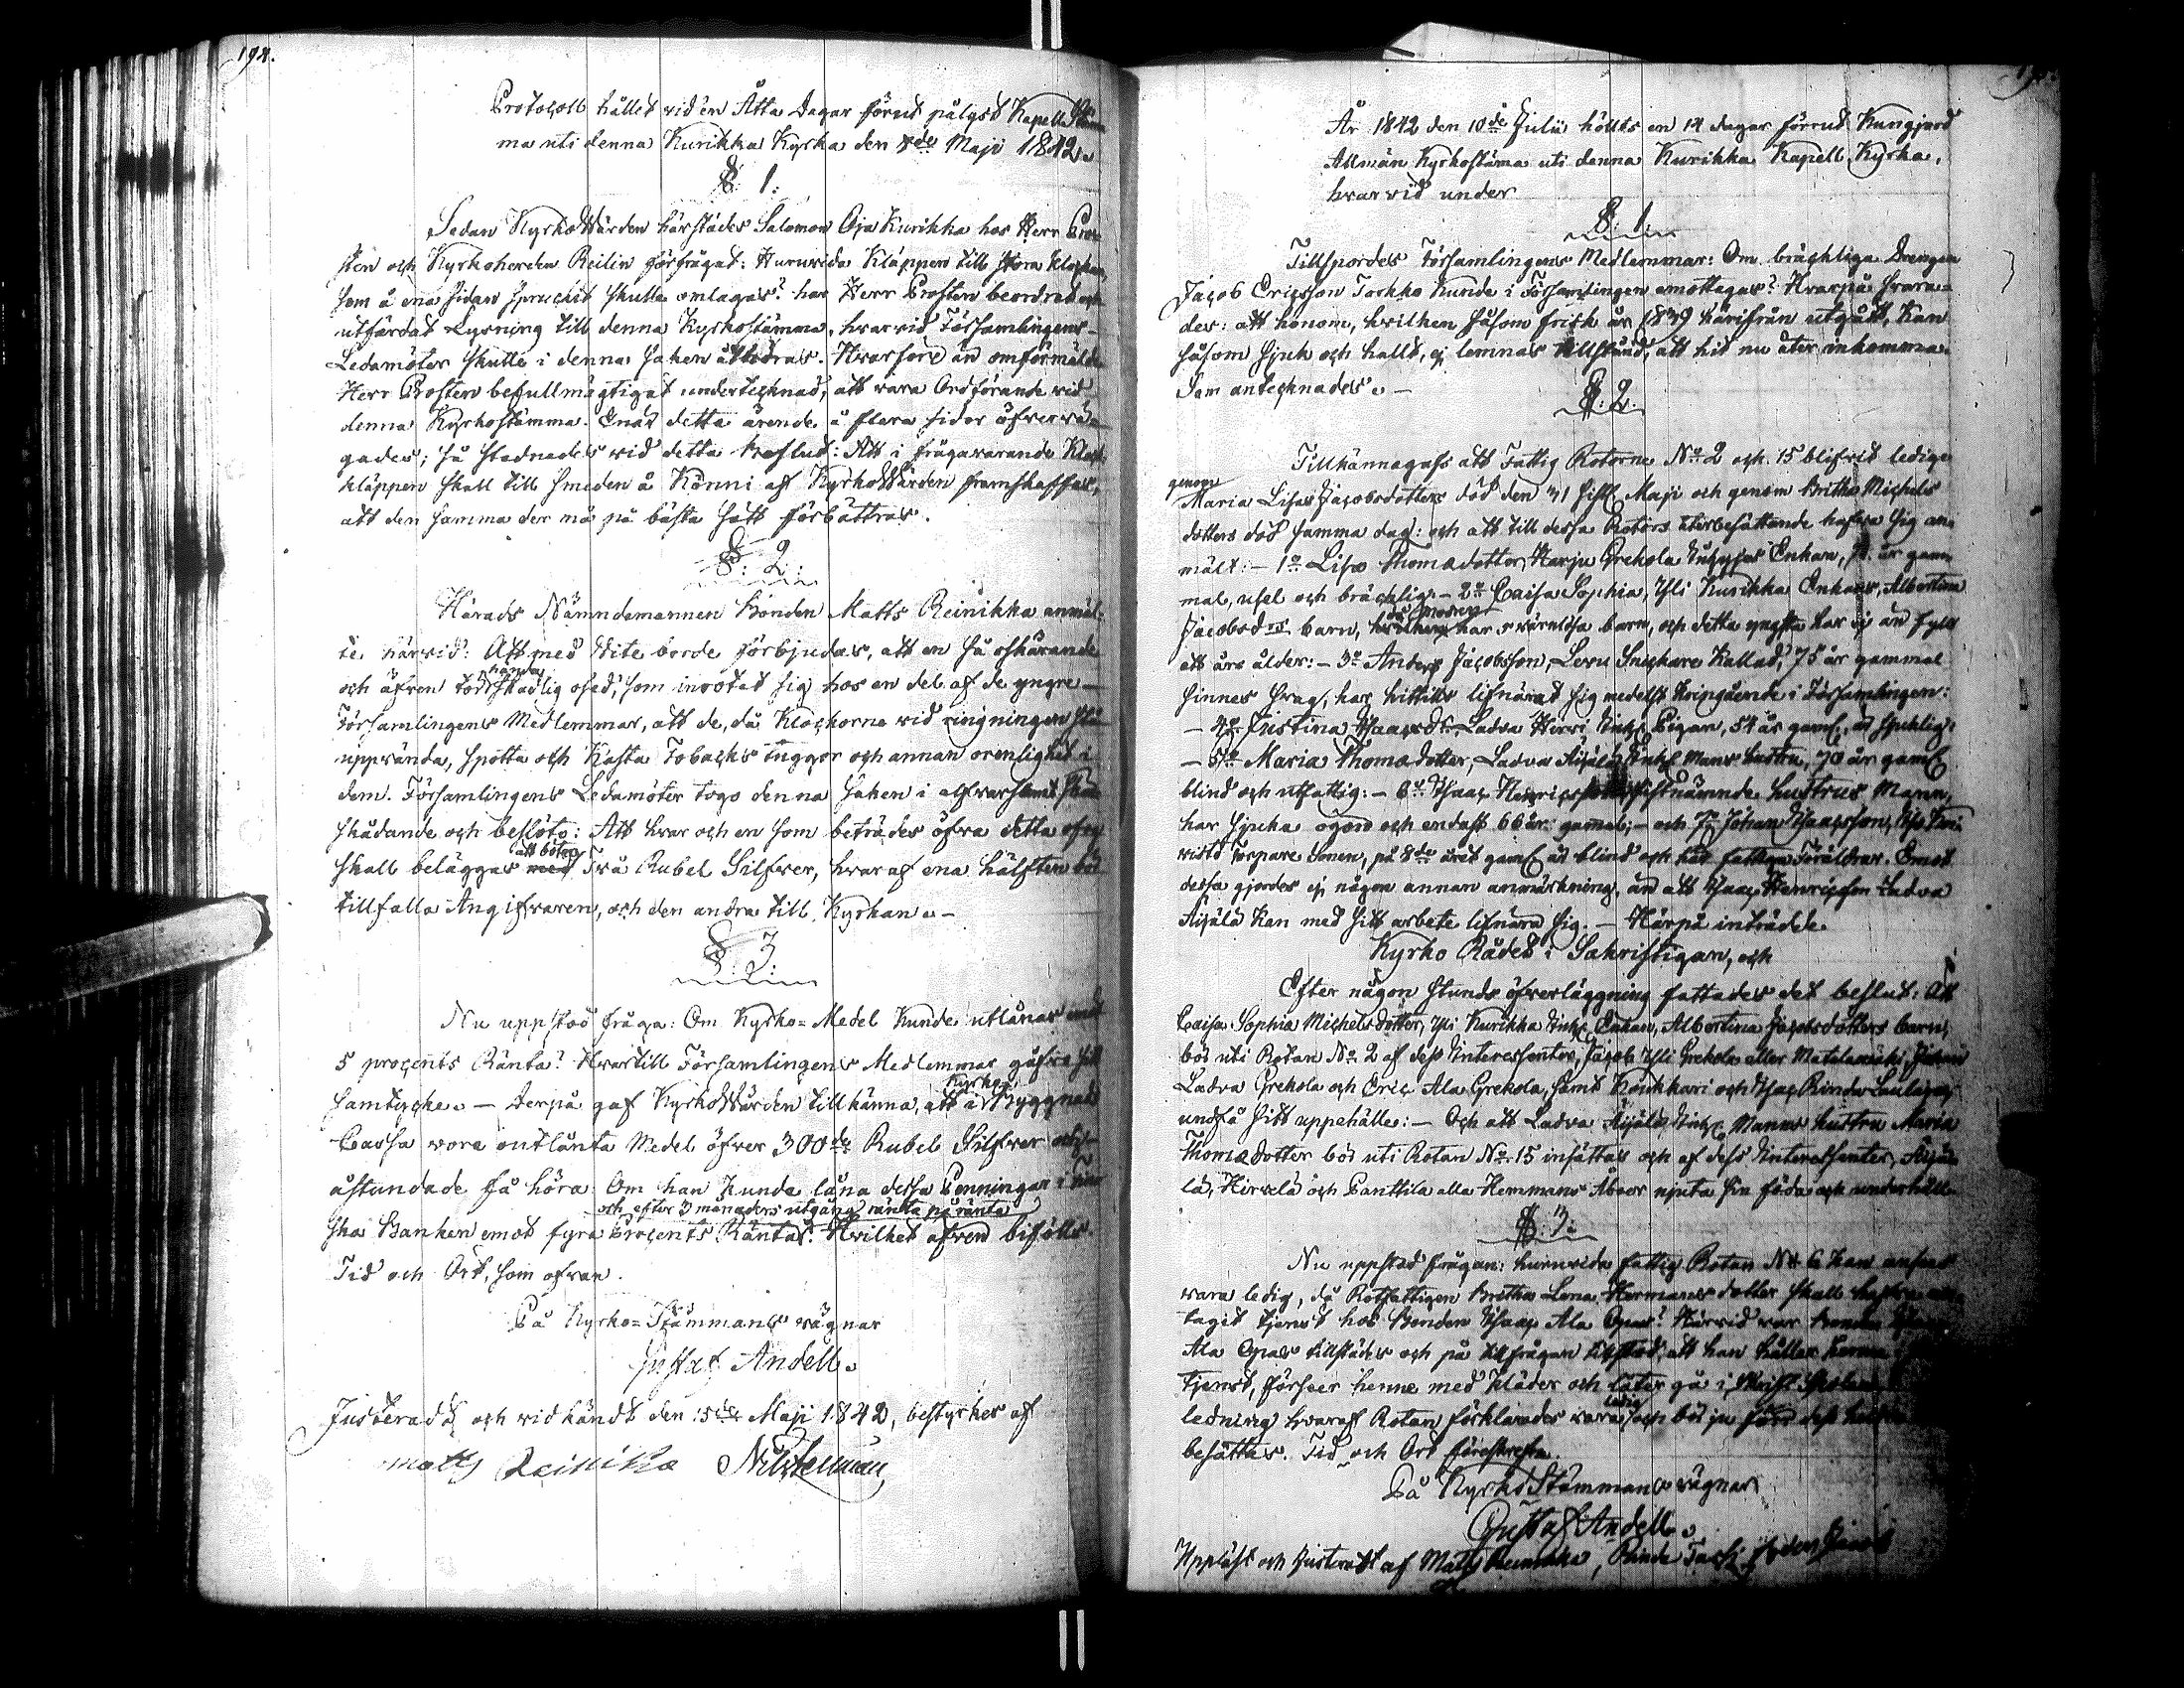 192.
Protocoll hållet vid en Åtta Dagar förut pålyst Kapell Stäm
ma uti denna Kurikka Kyrka den 8de Maji 1842.
§ 1:
Sedan KyrkoWärden härstädes Salomon Oja Kurikka hos Herr Pro
sten och Kyrkoherden Reilin förfrågat: Huruvida Kläppen till Stora Klockan
som å ena sidan spruckit skulle omlagas? har Herr Prosten beordrat och
utfärdat Lysning till denna Kyrkostämma, hvarvid Församlingens
Ledamöter skulle i denna saken åthöras. Hvarföre än omförmälde
Herr Prosten befullmägtigat undertecknad, att vara Ordförande vid
denna Kyrkostämma. Enär detta ärende å flera sidor öfvervä-
gades; så stadnades vid detta beslut: Att i frågavarande Klock
kläppen skall till smeden å Könni af KyrkoWärden framskaffas,
att den samma der må på bästa sätt förbättras.
§: 2:
Härads Nämndemannen Bonden Matts Reinikka anmäl-
te härvid: Att med Wite borde förbjudas, att en så oskärande
och äfven skadlig osed, som inrotat sig hos en del af de yngre
Församlingens Medlemmar, att de, då Klockorne vid ringningen stå
uppvända, spotta och Kasta Tobacks tuggor och annan orenlighet i
dem. Församlingens Ledamöter togo denna saken i alfvarsamt
skådande och beslöto: Att hvar och en som beträdes öfva detta osed
att böta
skall beläggas med Två Rubel Silfver, hvaraf ena hälften bör
tillfalla Angifvaren, och den andra till Kyrkan. -
§ 3:
Nu uppstod fråga: Om Kyrko-Medel Kunde utlånas emot
5 procents Ränta? Hvartill Församlingens Medlemmar gåfvo sitt
Kyrko
samtycke. - Derpå gaf KyrkoWärden tillkänna, att i Byggnads
Cassa vore outlånta Medel öfver 300de Rubel Silfver och
åstundade få höra: Om han Kunde låna dessa Penningar i Fin
och efter 3 månaders utgång ränta på ränta
ska Banken emot fyra Procents Ränta? Hvilket äfven bifölls.
Tid och Ort, som ofvan.
På Kyrko-Stämmans vägnar
Gustaf Andell.
Justeradt och vidkändt den 15de Maji 1842, bestyrkes af
Matts Reinikka
År 1842 den 10de Julii hölts en 14 dagar förrut Kungjord
Allmän Kyrkostäma uti denna Kurikka Kapell Kyrka,
hvarvid under
§ 1
Tillspordes Församlingens Medlemmar: Om bräckliga Drengen
Jacob Ericsson Tarkko Kunde i Församlingen emottagas? Hvarpå svara-
des: att honom, hvilken såsom frisk år 1839 härifrån utgått, Kan
såsom sjuk och hallt, ej lemnas tillstånd, att hit nu åter inkomma.
Som antecknades. -
§. 2.
Tillkännagafs att Fattig Rotorne No 2 och 15 blifvit lediga
genom
Maria Lisa Jacobsdotters död den 31 sistl Maji och genom Britha Michels
dotters död samma dag: och att till dessa Rotors återbesättande hafva sig an-
mält: - 1o Lisa Thomædotter Harju Grekola Enkan, år gam
mal, usel och bräcklig. - 2o Caisa Sophia, Yli Kurikka Enkans, Albertina
Jacobsdrs barn, har värnlösa barn, och detta yngsta har ej än fyllt
ett års ålder: - 3o Anders Jacobsson, Leru Snickare Kallad, 75 år gammal
sinnes svag, har hittills lifnärat sig medelst Kringående i Församlingen:
- 4o Justina Isaacsdr Ladva Hirvi Pigan, 54 år gaml, är sjuklig:
- 5o Maria Thomædotter, Ladva Äijälä Mans hustru, 70 år gaml
blind och utfattig: - 6o Isaac Henricsson sistnämnde hustrus Mann,
har sjuka ögon och endast 66 år gammal; - och 7o Johan Isaacsson,
Torpare Sonen, på 8de året gaml är blind och har fattiga Föräldrar. Emot
dessa gjordes ej någon annan anmärkning, än att Isaac Henricsson Ladva
Äijälä Kan med sitt arbete lifnära sig. - Härpå inträdde
Kyrko Rådet i Sakristigan, och
Efter någon stunds öfverläggning fattades det beslut: Att
Caisa Sophia Michelsdotter, Yli Kurikka Enkan, Albertina Jacobsdotters barn,
bör uti Rotan No 2 af dess Interessenter, Jacob Yli Grekola eller Matelamäki,
Ladva Grekola och Eric Ala Grekola, samt Koukkari och Isac Rinda
undfå sitt uppehälle: - Och att Ladva Äijälä Manns hustru Maria
Thomædotter bör uti Rotan No 15 insättas och af dess Interessenter, Äijä
lä, Hirvelä och Panttila alla Hemmans Åboer njuta sin föda och underhåll.
§ 3:
Nu uppstod frågan: huruvida fattig Rotan No 6 kan anses
vara ledig, då Rotfattigen Britha Lena Hermansdotter skall
tagit tjenst hos Bonden Isaac Ala Opas? Härvid var Bonden
Ala Opas tillstädes och på tillfrågan tillstod, att han håller henne
tjenst, förseer henne med kläder och låter gå i
ledig
ledning hvaraf Rotan förklarades vara och bör ju förr dess
besättas. Tid och Ort föreskrefne.
På KyrkoStämmans vägnar
Gustaf Andell.
Uppläst och Justeradt af Matts Reinikka,